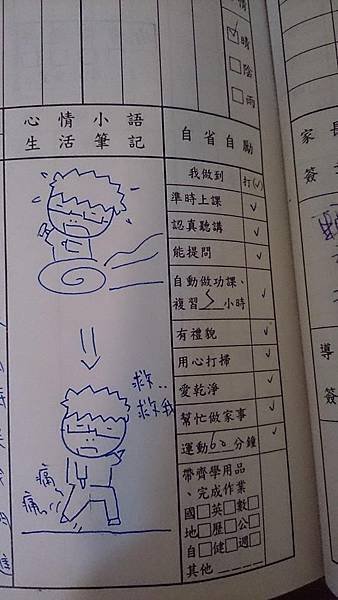 情
晴
陰
雨
心情小語
生活筆記
自省自勵
我做到 打(✓)
準時上課 ✓
認真聽講 ✓
能提問 ✓
自動做功課、
複習3小時 ✓
有禮貌 ✓
用心打掃 ✓
愛乾淨 ✓
幫忙做家事 ✓
運動60分鐘 ✓
帶齊學用品
、完成作業
國□英□數□
地□歷□公□
自□健□週□
其他
救..
救我
痛..
痛..
家長
簽
導
簽